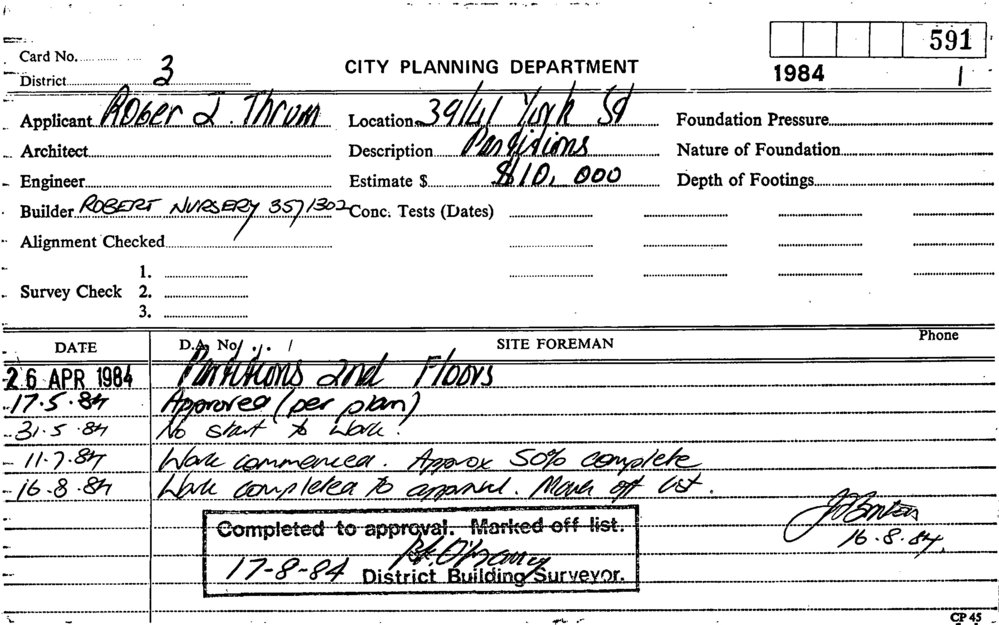 591
Card No. 3
District
CITY PLANNING DEPARTMENT
1984 1
Applicant Rober J. Thrum Location 39/41 York St Foundation Pressure
Architect Description Partitions Nature of Foundation
Engineer Estimate $ $10,000 Depth of Footings
Builder ROBERT NURSERY 357/302 Conc. Tests (Dates)
Alignment Checked
1.
Survey Check 2.
3.
DATE D.A. No. / SITE FOREMAN Phone
26 APR 1984 Partitions 2nd Floors
17.5.84 Approved (per plan)
31.5.84 No start to work.
11.7.84 Work commenced. Approx 50% complete
16.8.84 Work completed to approval. Mark off list.
16.8.84.
Completed to approval. Marked off list.
17-8-84 District Building Surveyor.
CP 45